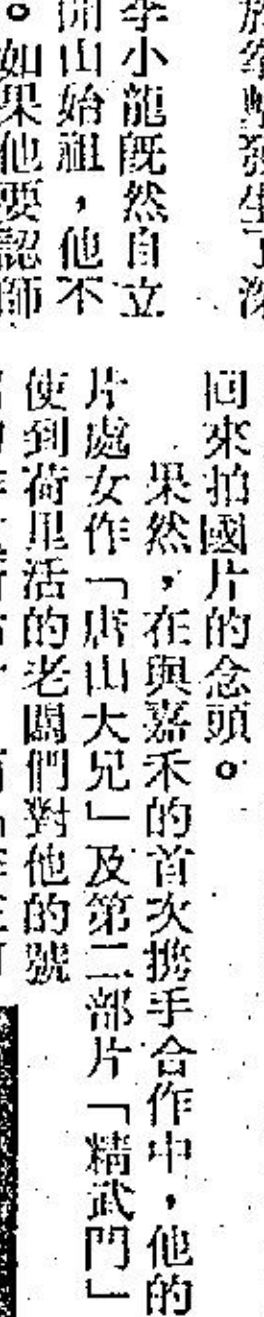 於拳擊發生了深
李小龍旣然自立
開山始祖，他不
。如果他要認師
回來拍國片的念頭。
果然，在與嘉禾的首次携手合作中，他的
片處女作「唐山大兄」及第二部片「精武門」
使到荷里活的老闆們對他的號